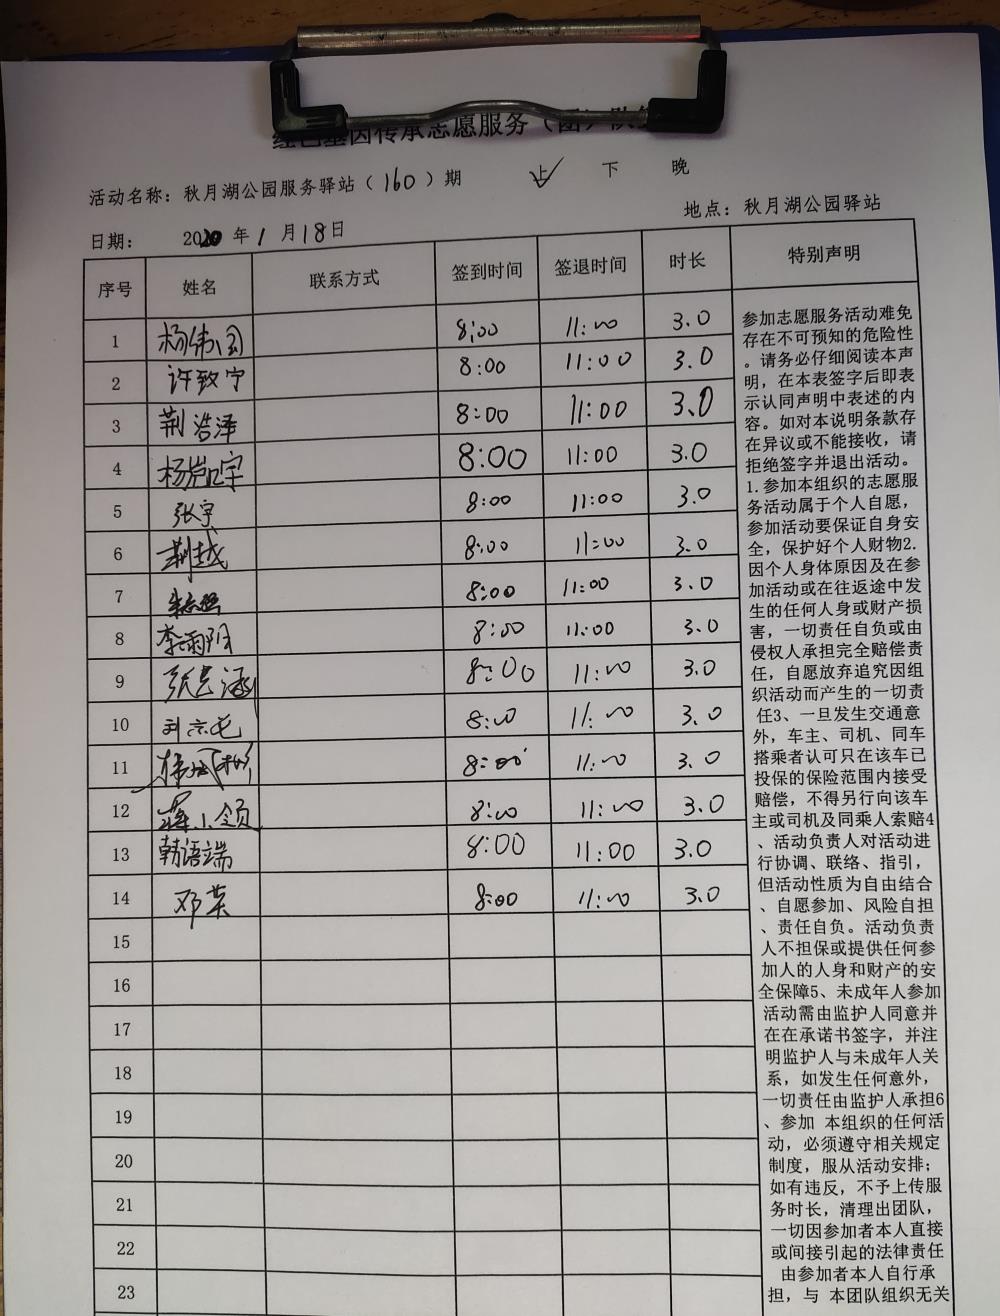 红色基因传承志愿服务（团）队
活动名称：秋月湖公园服务驿站（160）期 上 下 晚
日期： 2020 年 1 月 18 日 地点：秋月湖公园驿站
序号 姓名 联系方式 签到时间 签退时间 时长 特别声明
1 杨伟国 8:00 11:00 3.0
2 许致宁 8:00 11:00 3.0
3 荆浩泽 8:00 11:00 3.0
4 杨 宇 8:00 11:00 3.0
5 张宇 8:00 11:00 3.0
6 荆越 8:00 11:00 3.0
7 8:00 11:00 3.0
8 李雨阳 8:00 11:00 3.0
9 张 涵 8:00 11:00 3.0
10 刘 8:00 11:00 3.0
11 8:00 11:00 3.0
12 蒋小领 8:00 11:00 3.0
13 韩语端 8:00 11:00 3.0
14 邓英 8:00 11:00 3.0
15
16
17
18
19
20
21
22
23
参加志愿服务活动难免
存在不可预知的危险性
。请务必仔细阅读本声
明，在本表签字后即表
示认同声明中表述的内
容。如对本说明条款存
在异议或不能接收，请
拒绝签字并退出活动。
1.参加本组织的志愿服
务活动属于个人自愿，
参加活动要保证自身安
全，保护好个人财物2.
因个人身体原因及在参
加活动或在往返途中发
生的任何人身或财产损
害，一切责任自负或由
侵权人承担完全赔偿责
任，自愿放弃追究因组
织活动而产生的一切责
任3、一旦发生交通意
外，车主、司机、同车
搭乘者认可只在该车已
投保的保险范围内接受
赔偿，不得另行向该车
主或司机及同乘人索赔4
、活动负责人对活动进
行协调、联络、指引，
但活动性质为自由结合
、自愿参加、风险自担
、责任自负。活动负责
人不担保或提供任何参
加人的人身和财产的安
全保障5、未成年人参加
活动需由监护人同意并
在在承诺书签字，并注
明监护人与未成年人关
系，如发生任何意外，
一切责任由监护人承担6
、参加 本组织的任何活
动，必须遵守相关规定
制度，服从活动安排；
如有违反，不予上传服
务时长，清理出团队，
一切因参加者本人直接
或间接引起的法律责任
由参加者本人自行承
担，与 本团队组织无关